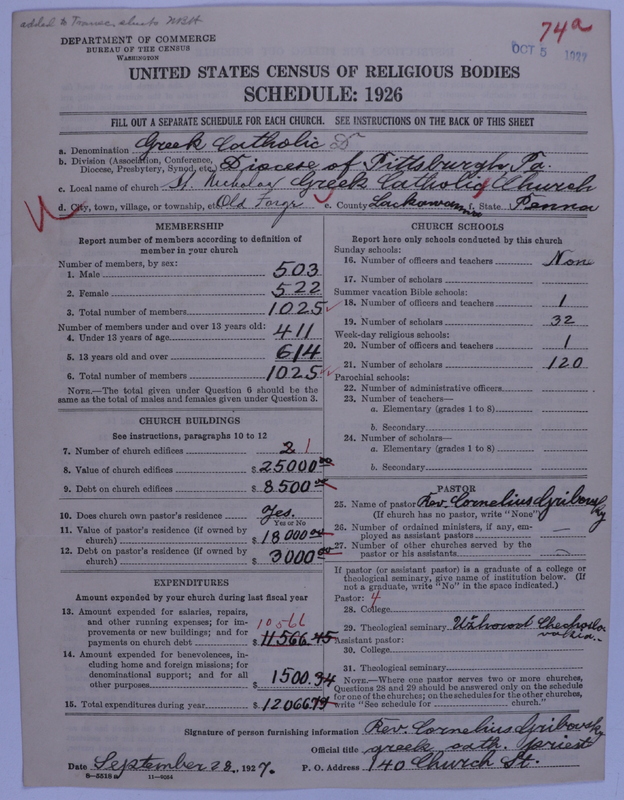 added to Transc. sheets NBH
74a
OCT 5 1927
DEPARTMENT OF COMMERCE
BUREAU OF THE CENSUS
WASHINGTON
UNITED STATES CENSUS OF RELIGIOUS BODIES
SCHEDULE: 1926
FILL OUT A SEPARATE SCHEDULE FOR EACH CHURCH. SEE INSTRUCTIONS ON THE BACK OF THIS SHEET
a. Denomination Greek Catholic
b. Division (Association, Conference, Diocese, Presbytery, Synod, etc.) Diocese of Pittsburgh, Pa.
c. Local name of church St. Nicholas Greek Catholic Church
d. City, town, village, or township, etc. Old Forge e. County Lackawanna f. State Penna
MEMBERSHIP
Report number of members according to definition of
member in your church
Number of members, by sex:
1. Male 503
2. Female 522
3. Total number of members 1025
Number of members under and over 13 years old:
4. Under 13 years of age 411
5. 13 years old and over 614
6. Total number of members 1025
NOTE.—The total given under Question 6 should be the
same as the total of males and females given under Question 3.
CHURCH BUILDINGS
See instructions, paragraphs 10 to 12
7. Number of church edifices 2 1
8. Value of church edifices $ 25000 00
9. Debt on church edifices $ 8500 00
10. Does church own pastor's residence Yes.
Yes or No
11. Value of pastor's residence (if owned by
church) $ 18000 00
12. Debt on pastor's residence (if owned by
church) $ 3000 00
EXPENDITURES
Amount expended by your church during last fiscal year
13. Amount expended for salaries, repairs,
and other running expenses; for im-
provements or new buildings; and for
payments on church debt $ 11566.45
10566
14. Amount expended for benevolences, in-
cluding home and foreign missions; for
denominational support; and for all
other purposes $ 1500.34
15. Total expenditures during year $ 12066.79
CHURCH SCHOOLS
Report here only schools conducted by this church
Sunday schools:
16. Number of officers and teachers None
17. Number of scholars
Summer vacation Bible schools:
18. Number of officers and teachers 1
19. Number of scholars 32
Week-day religious schools:
20. Number of officers and teachers 1
21. Number of scholars 120
Parochial schools:
22. Number of administrative officers
23. Number of teachers—
a. Elementary (grades 1 to 8)
b. Secondary
24. Number of scholars—
a. Elementary (grades 1 to 8)
b. Secondary
PASTOR
25. Name of pastor Rev. Cornelius Gribovsky
(If church has no pastor, write "None")
26. Number of ordained ministers, if any, em-
ployed as assistant pastors —
27. Number of other churches served by the
pastor or his assistants —
If pastor (or assistant pastor) is a graduate of a college or
theological seminary, give name of institution below. (If
not a graduate, write "No" in the space indicated.)
Pastor: 4
28. College
29. Theological seminary Užhorod Chechoslovakia.
Assistant pastor:
30. College
31. Theological seminary
NOTE.—Where one pastor serves two or more churches,
Questions 28 and 29 should be answered only on the schedule
for one of the churches; on the schedules for the other churches,
write "See schedule for church."
Signature of person furnishing information Rev. Cornelius Gribovsky
Official title greek cath. priest
Date September 28., 1927. P. O. Address 140 Church St.
8—5518 a 11—9084